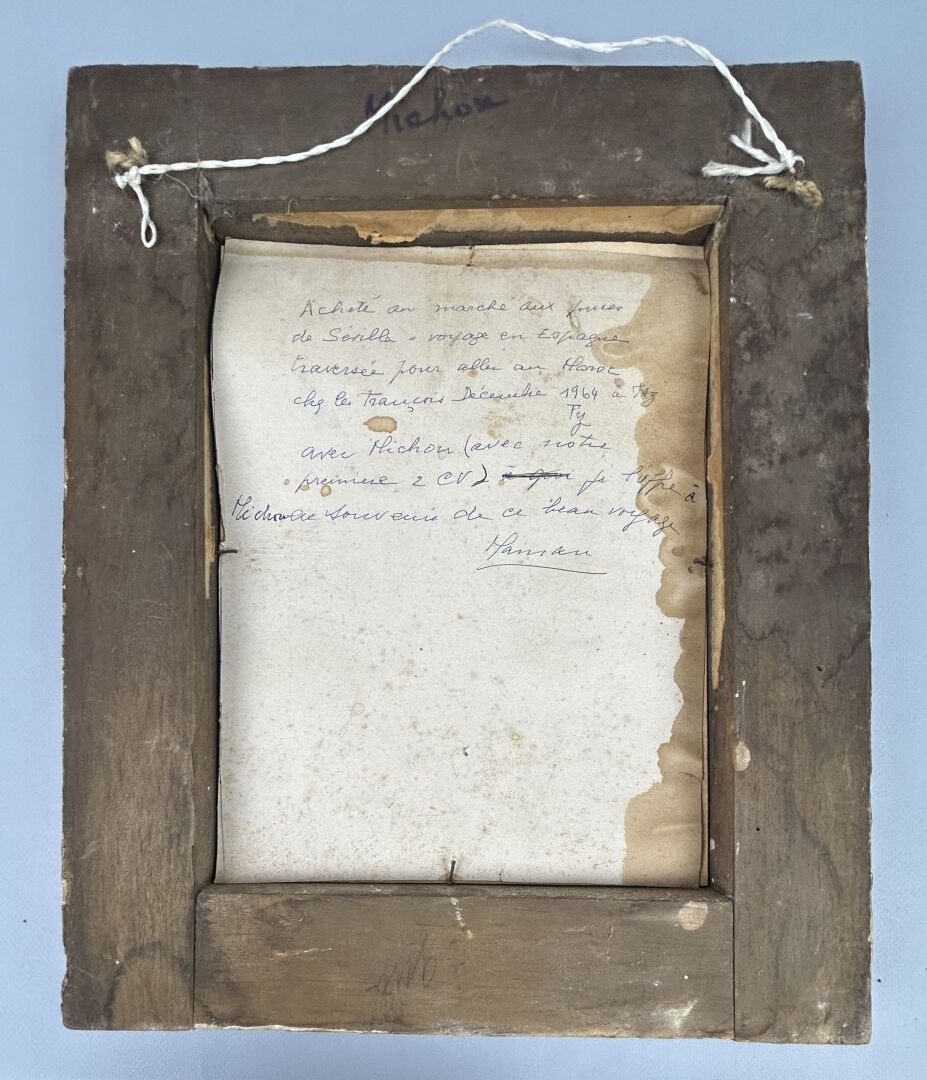 Michon
Acheté au marché aux puces
de Séville - voyage en Espagne
traversée pour aller au Maroc
chez les François Décembre 1964 à Fez
avec Michon (avec notre
première 2 CV) je l'offre à
Michon ce souvenir de ce beau voyage
Maman